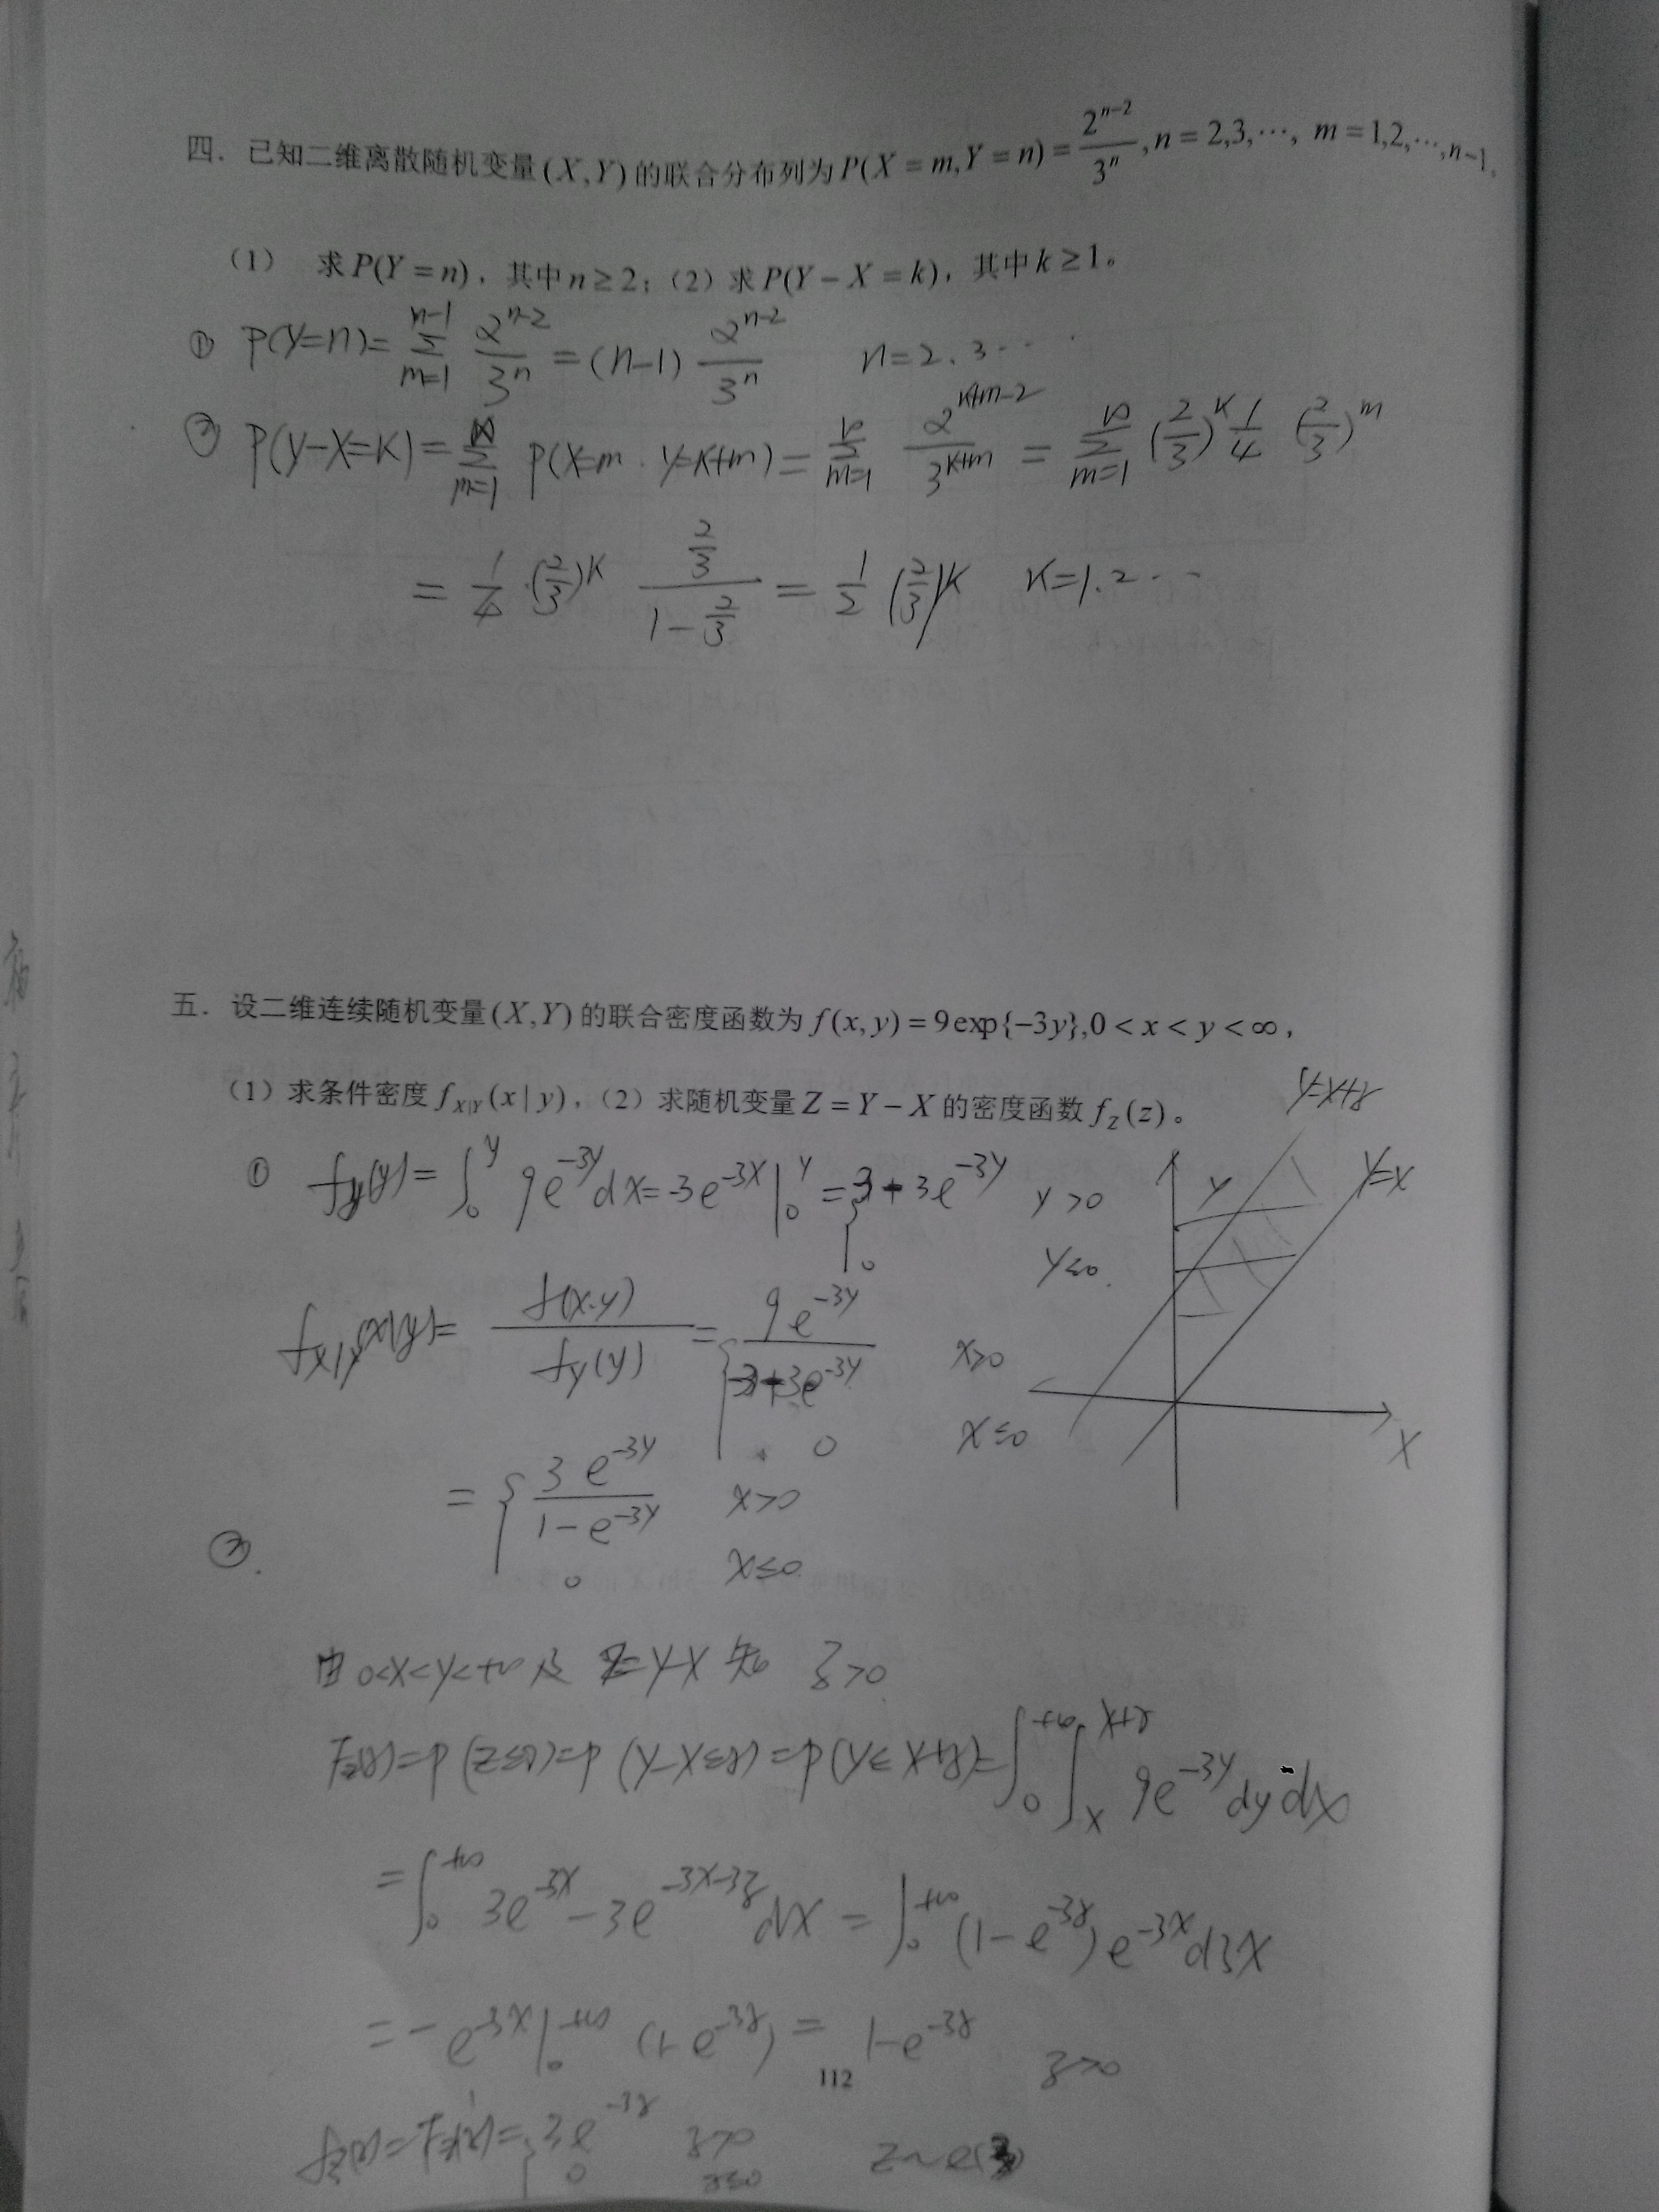 四. 已知二维离散随机变量(X,Y)的联合分布列为P(X=m,Y=n)=\frac{2^{n-2}}{3^n},n=2,3,⋯, m=1,2,⋯,n-1。
(1) 求P(Y=n),其中n≥2;(2)求P(Y-X=k),其中k≥1。
① P(Y=n)=\sum_{m=1}^{n-1}\frac{2^{n-2}}{3^n}=(n-1)\frac{2^{n-2}}{3^n} n=2.3⋯
② P(Y-X=K)=\sum_{m=1}^{∞} P(X=m.Y=K+m)=\sum_{m=1}^{∞}\frac{2^{K+m-2}}{3^{K+m}}=\sum_{m=1}^{∞}(\frac{2}{3})^K\frac{1}{4}(\frac{2}{3})^m
=\frac{1}{4}·(\frac{2}{3})^K\frac{\frac{2}{3}}{1-\frac{2}{3}}=\frac{1}{2}(\frac{2}{3})^K K=1.2⋯
五. 设二维连续随机变量(X,Y)的联合密度函数为f(x,y)=9exp{-3y},0<x<y<∞,
(1)求条件密度f_{X|Y}(x|y),(2)求随机变量Z=Y-X的密度函数f_Z(z)。
y=x+z
y=x
Y
X
① f_Y(y)=∫_0^y 9e^{-3y}dx=-3e^{-3x}|_0^y={3+3e^{-3y} y>0
0 y≤0
f_{X|Y}(x|y)=\frac{f(x.y)}{f_Y(y)}={\frac{9e^{-3y}}{-3+3e^{-3y}} x>0
0 x≤0
={\frac{3e^{-3y}}{1-e^{-3y}} x>0
0 x≤0
②.
由0<x<y<+∞及 Z=Y-X 知 z>0
F_Z(z)=P(Z≤z)=P(Y-X≤z)=P(Y≤X+z)=∫_0^{+∞}∫_x^{x+z}9e^{-3y}dydx
=∫_0^{+∞}3e^{-3x}-3e^{-3x-3z}dx=∫_0^{+∞}(1-e^{-3z})e^{-3x}d3x
=-e^{-3x}|_0^{+∞}(1-e^{-3z})=1-e^{-3z} z>0
112
f_Z(z)=F_Z'(z)={3e^{-3z} z>0
0 z≤0
Z~e(3)